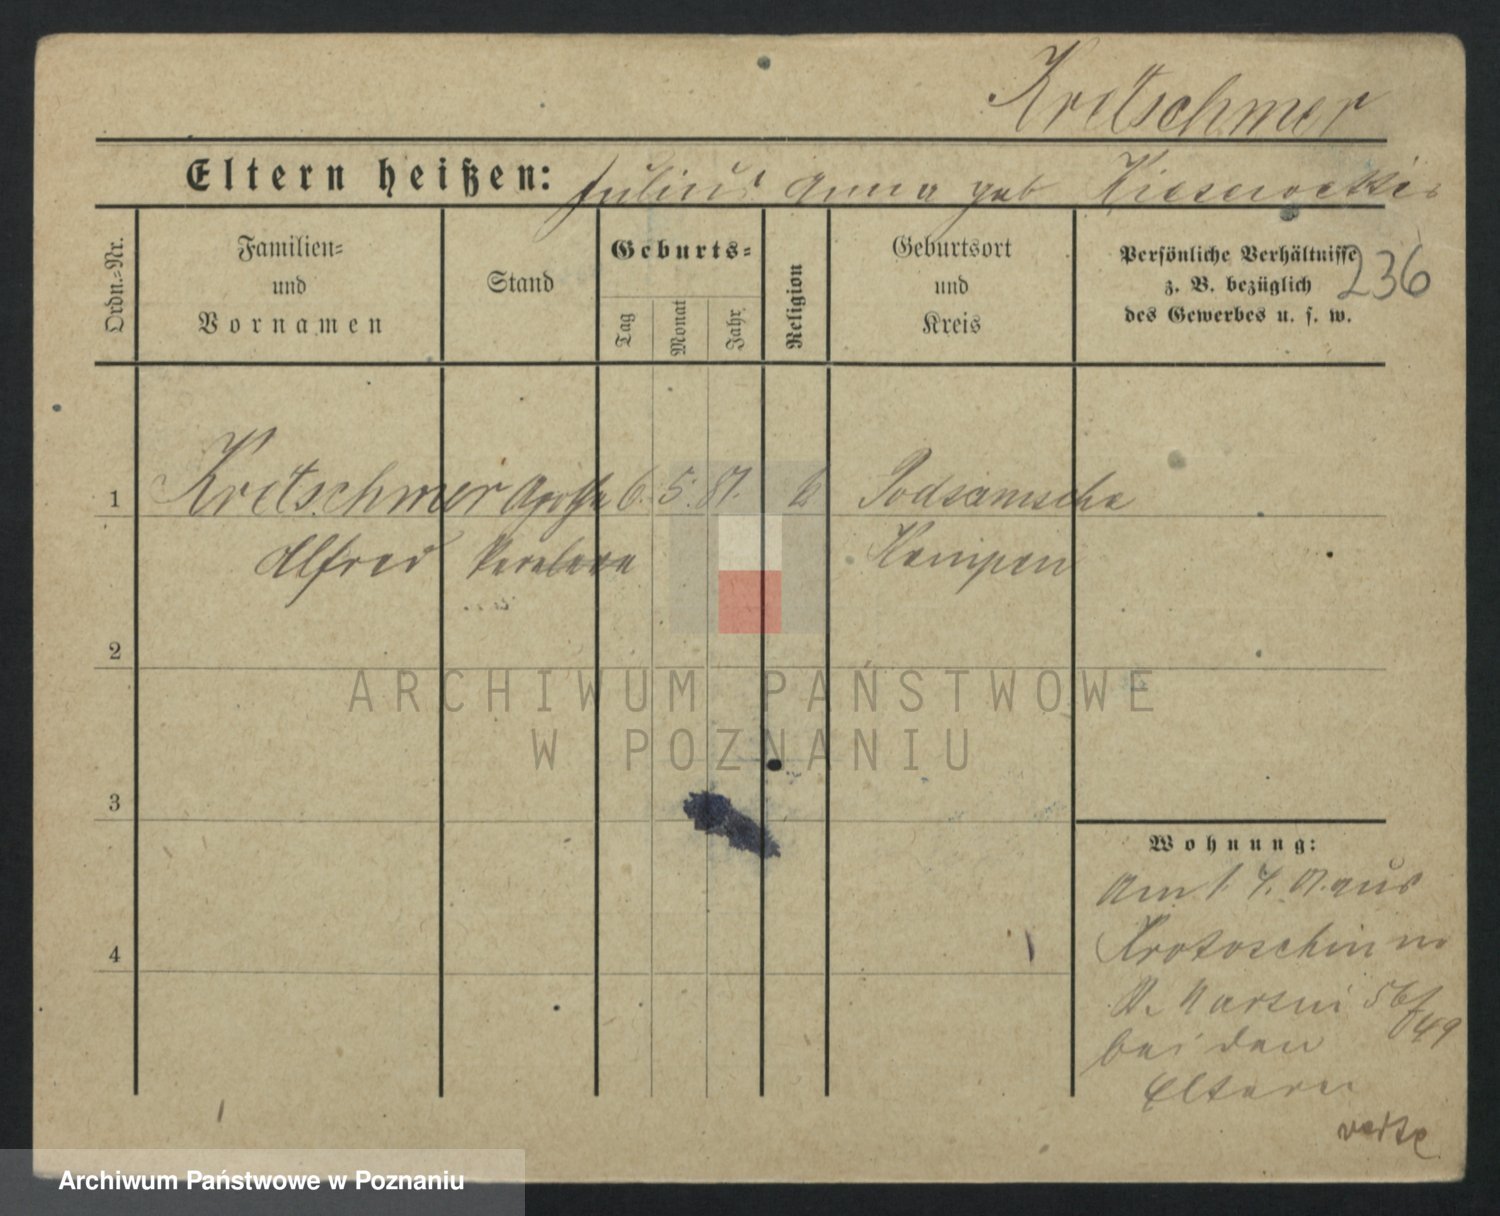 Kretschmer
Eltern heißen: Julius Anna geb
Ordn.-Nr.
Familien-
und
Vornamen
Stand
Geburts-
Tag
Monat
Jahr
Religion
Geburtsort
und
Kreis
Persönliche Verhältnisse
z. B. bezüglich
des Gewerbes u. s. w.
236
1 Kretschmer 6. 5. 87. Podsamsche
Alfred Kempen
2
3
4
ARCHIWUM PAŃSTWOWE
W POZNANIU
Wohnung:
Am 1. 7. aus
Krotoschin
St. Martin 56/
49
bei den
Eltern
verte
Archiwum Państwowe w Poznaniu